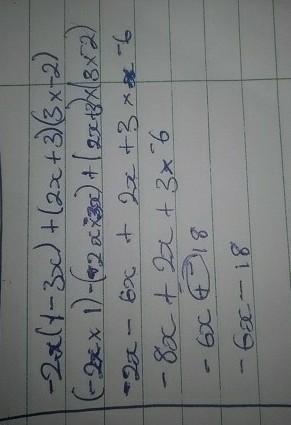 -2x(1-3x)+(2x+3)(3x-2)
(-2x×1)-(-2x×3x)+(2x+3)×(3×-2)
-2x-6x+2x+3×-6
-8x+2x+3×-6
-6x+-18
-6x-18